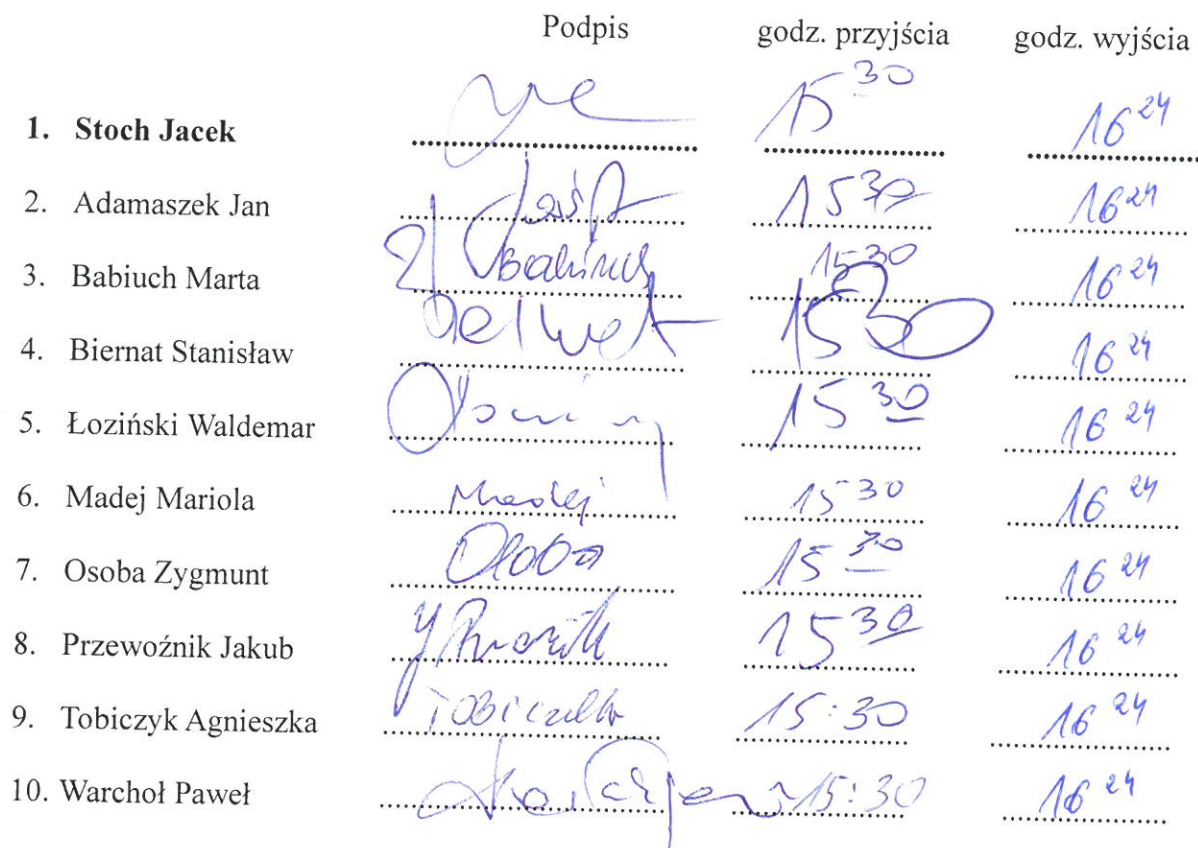 Podpis godz. przyjścia godz. wyjścia
1. Stoch Jacek 15 30 16 24
2. Adamaszek Jan 15 30 16 24
3. Babiuch Marta Babiuch 15 30 16 24
4. Biernat Stanisław 15 30 16 24
5. Łoziński Waldemar 15 30 16 24
6. Madej Mariola Madej 15 30 16 24
7. Osoba Zygmunt Osoba 15 30 16 24
8. Przewoźnik Jakub 15 30 16 24
9. Tobiczyk Agnieszka 15:30 16 24
10. Warchoł Paweł 15:30 16 24